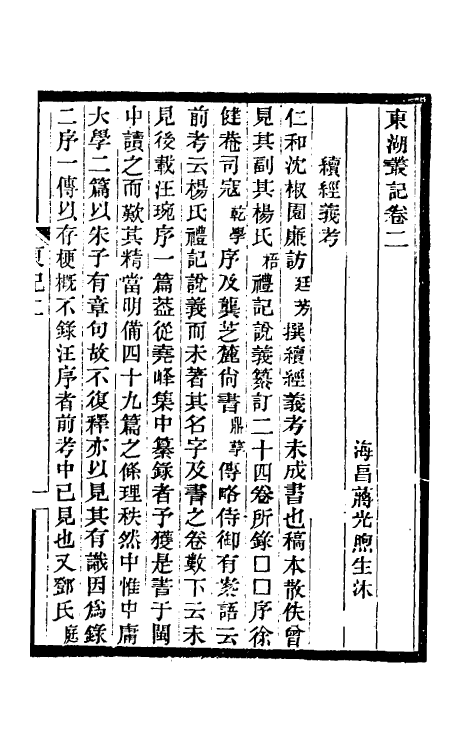 東湖叢記卷二
海昌蔣光煦生沐
續經義考
仁和沈椒園廉訪廷芳撰續經義考未成書也稿本散佚曾
見其副其楊氏梧禮記說義纂訂二十四卷所錄囗囗序徐
健菴司寇乾學序及龔芝麓尙書鼎孳傳略侍御有案語云
前考云楊氏禮記說義而未著其名字及書之卷數下云未
見後載汪琬序一篇葢從堯峰集中纂錄者予獲是書于閩
中讀之而歎其精當明備四十九篇之條理秩然中惟中庸
大學二篇以朱子有章句故不復釋亦以見其有識因爲錄
二序一傳以存梗槪不錄汪序者前考中已見也又鄧氏庭